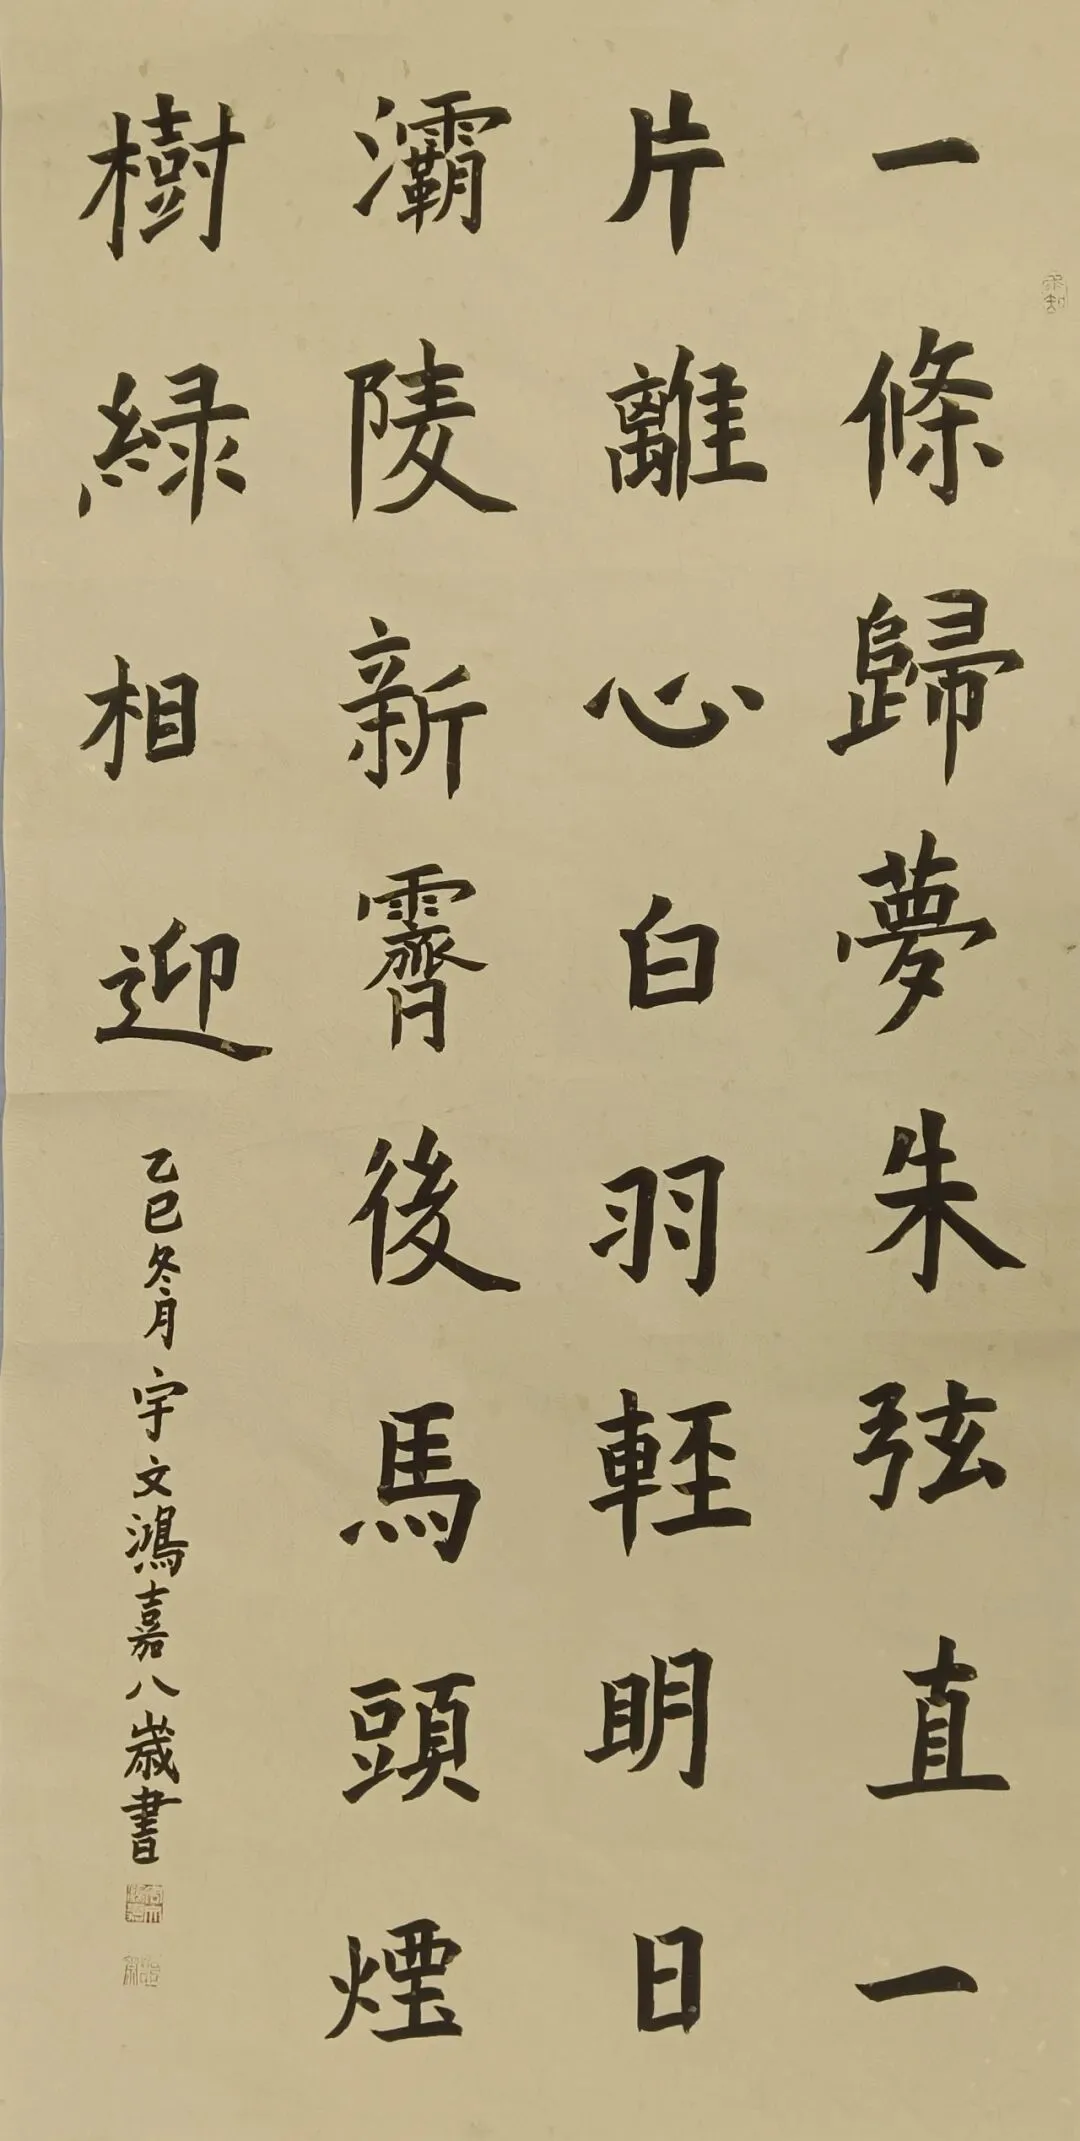 一條歸夢朱弦直一
片離心白羽輕明日
灞陵新霽後馬頭煙
樹緑相迎
乙巳冬月宇文鴻嘉八歲書